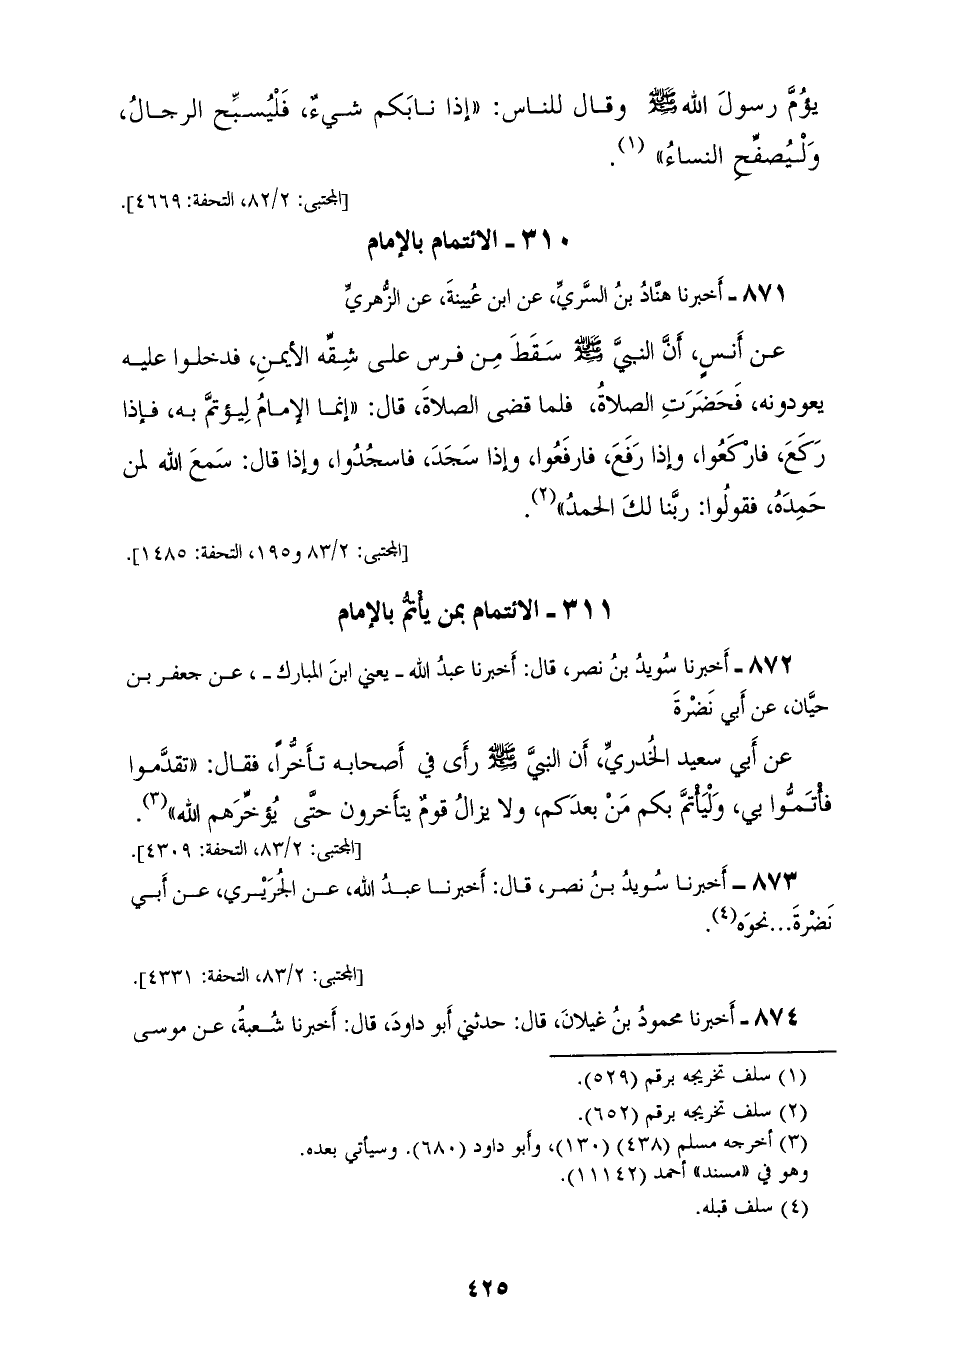 يؤُمَّ رسولَ الله ﷺ وقال للناس: «إذا نابَكم شيءٌ، فَلْيُسبِّح الرجالُ،
وَلْيُصفِّحِ النساءُ» (١).
[المجتبى: ٨٢/٢، التحفة: ٤٦٦٩].
٣١٠ ـ الائتمام بالإمام
٨٧١ ـ أخبرنا هنَّادُ بنُ السَّريِّ، عن ابن عُيينةَ، عن الزُّهريِّ
عن أَنسٍ، أَنَّ النبيَّ ﷺ سَقَطَ مِن فرس على شِقِّه الأيمنِ، فدخلوا عليه
يعودونه، فَحَضَرَتِ الصلاةُ، فلما قضى الصلاةَ، قال: «إنما الإمامُ لِيؤتمَّ به، فإذا
رَكَعَ، فاركَعُوا، وإذا رَفَعَ، فارفَعُوا، وإذا سَجَدَ، فاسجُدُوا، وإذا قال: سَمعَ الله لمن
حَمِدَهُ، فقولُوا: ربَّنا لكَ الحمدُ»(٢).
[المجتبى: ٨٣/٢ و١٩٥، التحفة: ١٤٨٥].
٣١١ ـ الائتمام بمن يأتمُّ بالإمام
٨٧٢ ـ أخبرنا سُويدُ بنُ نصر، قال: أخبرنا عبدُ الله ـ يعني ابنَ المبارك ـ ، عن جعفر بن
حيَّان، عن أَبي نَضْرةَ
عن أَبي سعيد الخُدريِّ، أن النبيَّ ﷺ رأَى في أَصحابه تأخُّراً، فقال: «تقدَّموا
فأْتَمُّوا بي، وَلْيَأْتمَّ بكم مَنْ بعدَكم، ولا يزالُ قومٌ يتأخرون حتَّى يُؤخِّرَهم الله»(٣).
[المجتبى: ٨٣/٢، التحفة: ٤٣٠٩].
٨٧٣ ـ أخبرنا سُويدُ بنُ نصر، قال: أخبرنا عبدُ الله، عن الجُرَيْري، عن أبي
نَضْرةَ...نحوَه(٤).
[المجتبى: ٨٣/٢، التحفة: ٤٣٣١].
٨٧٤ ـ أخبرنا محمودُ بنُ غيلانَ، قال: حدثني أَبو داودَ، قال: أخبرنا شُعبةُ، عن موسى
(١) سلف تخريجه برقم (٥٢٩).
(٢) سلف تخريجه برقم (٦٥٢).
(٣) أخرجه مسلم (٤٣٨) (١٣٠)، وأبو داود (٦٨٠). وسيأتي بعده.
وهو في «مسند» أحمد (١١١٤٢).
(٤) سلف قبله.
٤٢٥